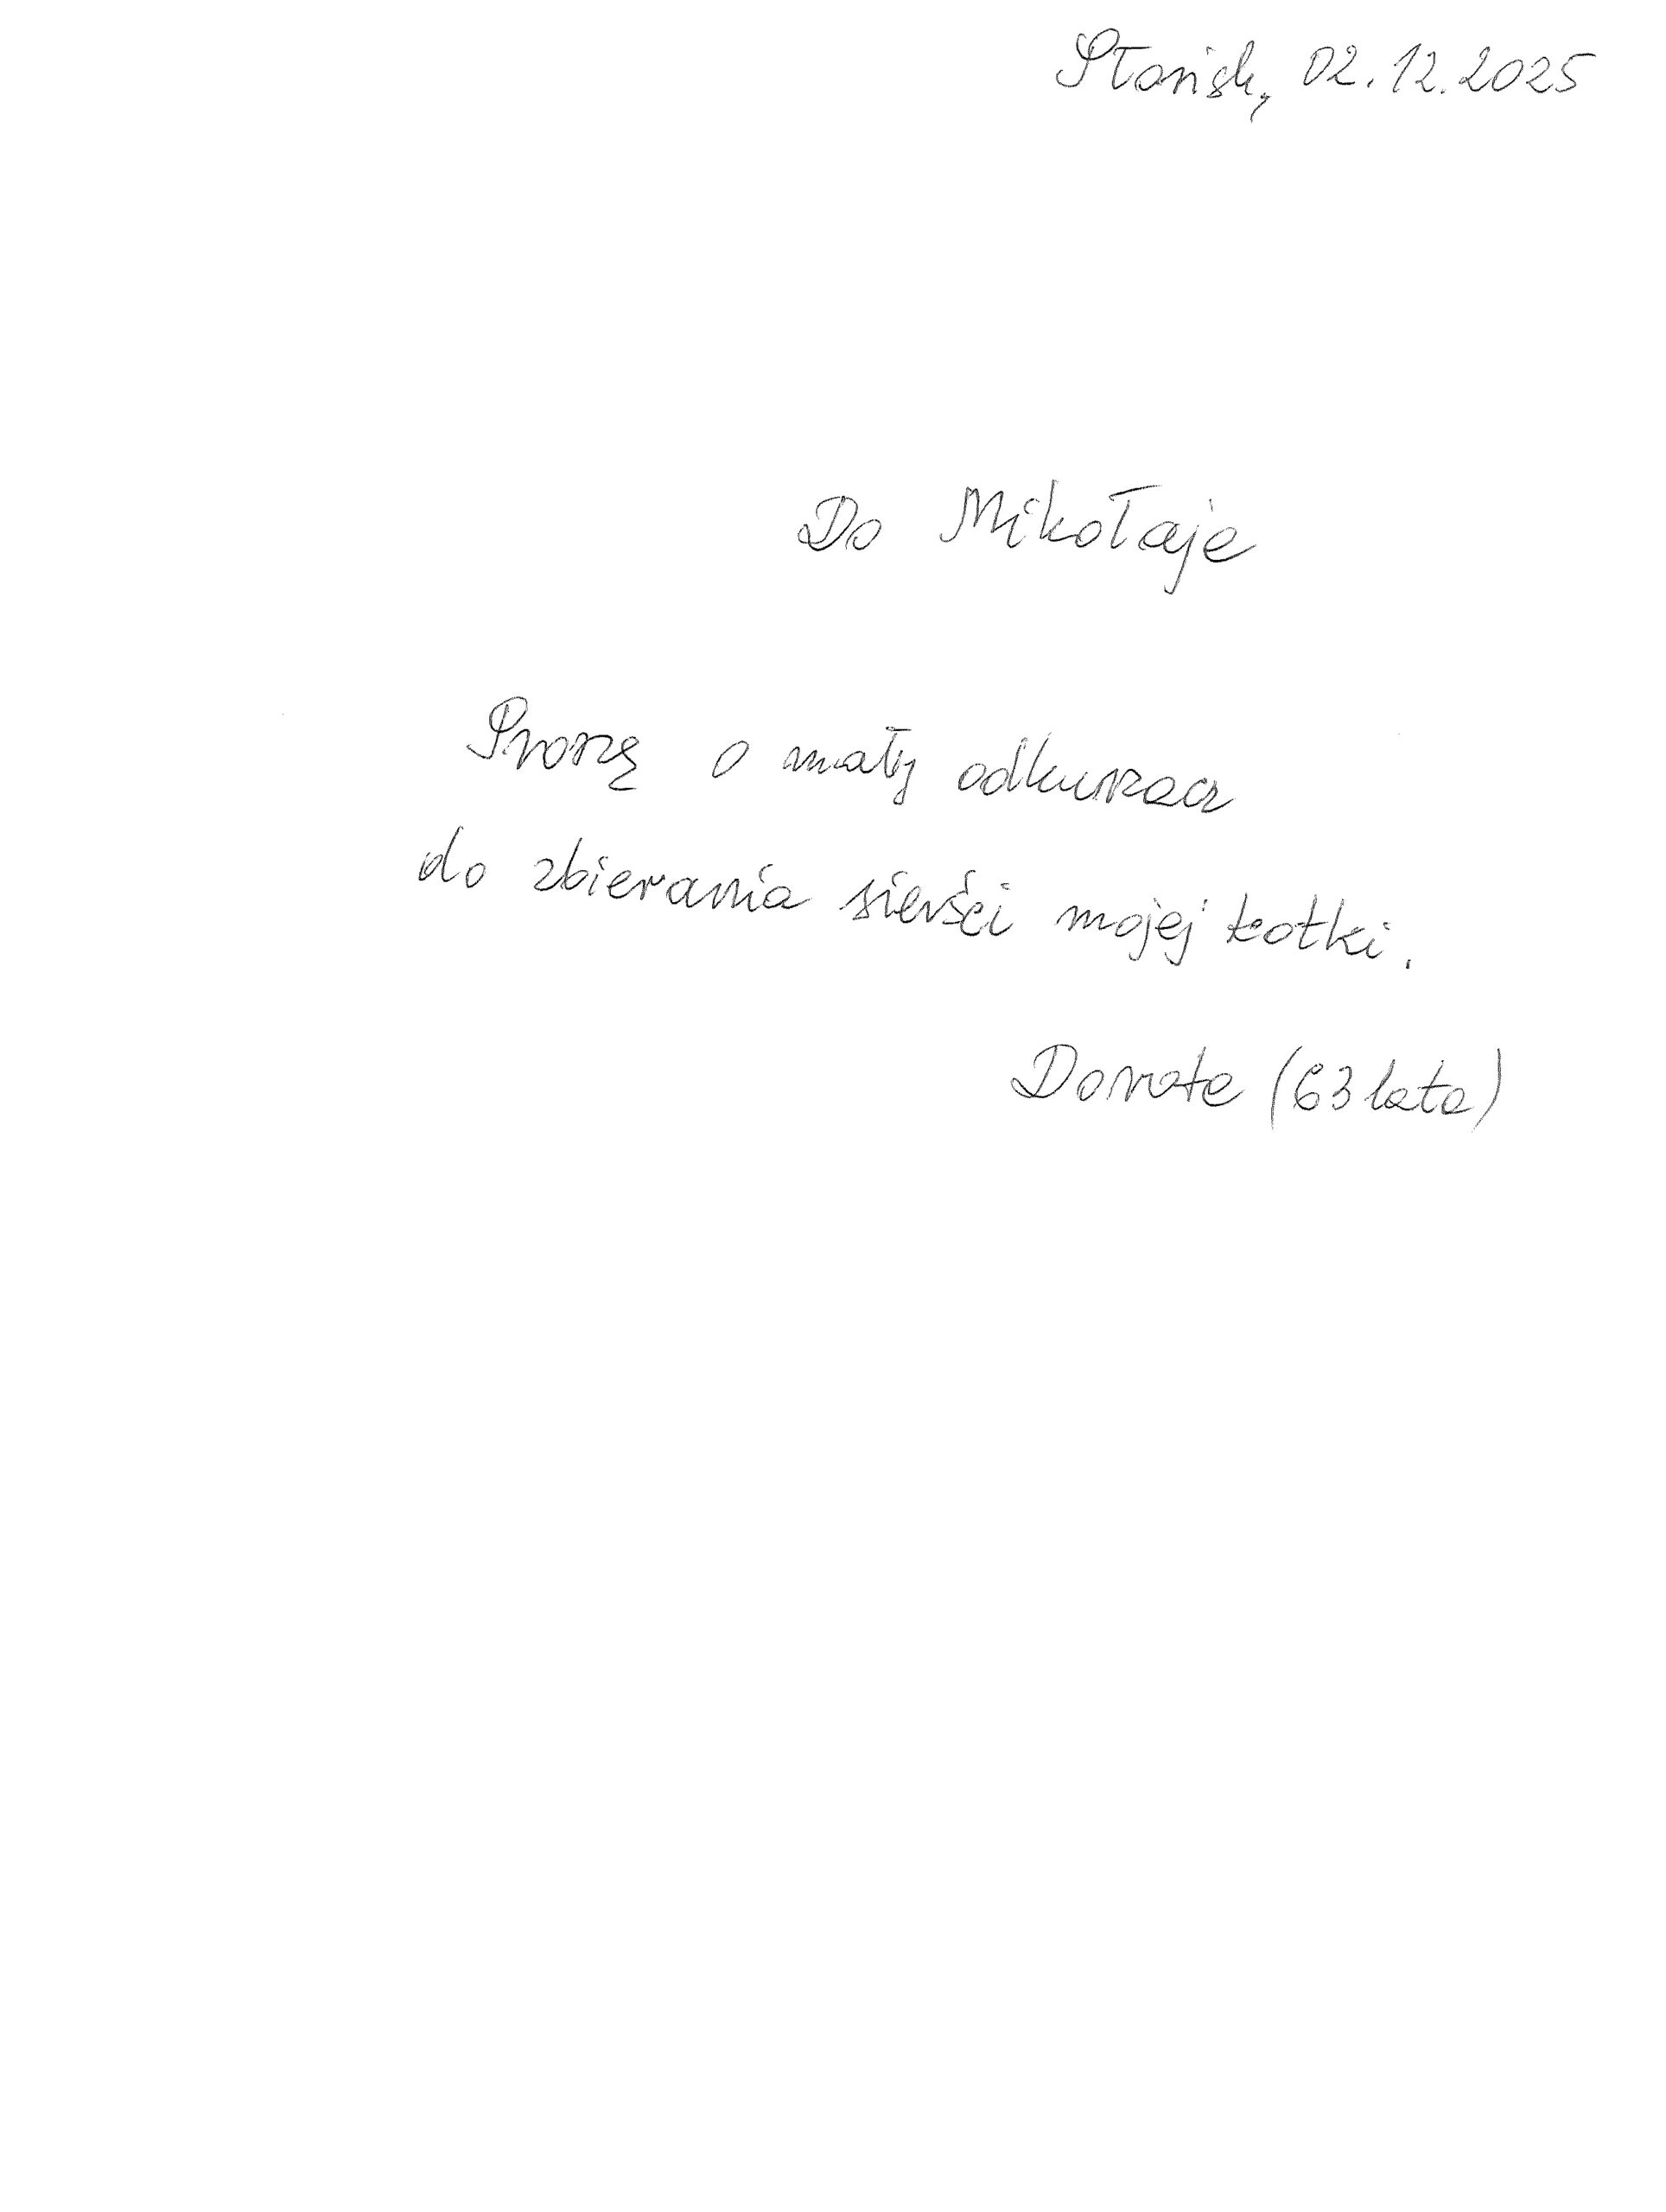 Płońsk, 02.12.2025
Do Mikołaja
Proszę o mały odkurzacz
do zbierania sierści mojej kotki.
Dorota (63 lata)